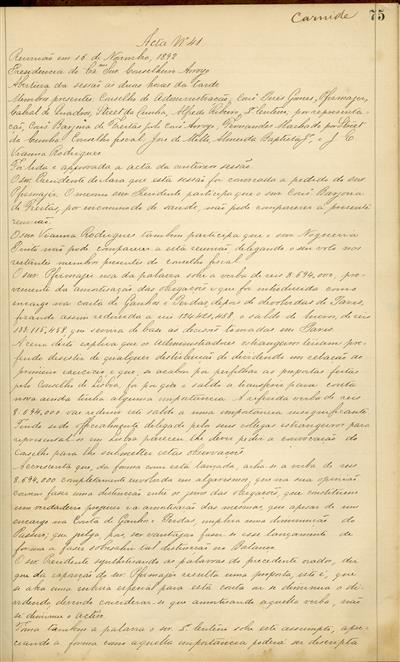 Carnide 75
Acta Nº 41
Reunião em 15 de Novembro, 1892
Presidencia do Exmo Snr. Conselheiro Arroyo
Abertura da sessão ás duas horas da tarde
Membros presentes: Conselho de Administração, Snrs.
Cabral de
Vianna Rodrigues
Foi lida e approvada a acta da anterior sessão
O snr. Presidente declara que esta sessão foi convocada a pedido do snr.
O mesmo snr. Presidente participa que o snr.
de Freitas, por incommodo de saude, não póde comparecer á presente
reunião.
O snr. Vianna Rodrigues tambem participa que o snr. Nogueira
Pinto não póde comparecer a esta reunião delegando o seu voto nos
restantes membros presentes do conselho fiscal
O snr. usa da palavra sobre a verba de reis 8.694,000, pro-
veniente da amortisação das obrigações e que foi introduzida como
encargo na conta de Ganhos e Perdas, depois de devolvidas de Paris,
ficando assim reduzido a reis 124.421,458 o saldo de lucros, de reis
133.115,458 que servira de base ás decisões tomadas em Paris.
A este respeito explica que os Administradores estrangeiros teriam pre-
ferido desistir de qualquer distribuição de dividendo em relação ao
primeiro exercicio e que, se acabam por perfilhar as propostas feitas
pelo Conselho de Lisboa, foi porque o saldo a transferir para conta
nova ainda tinha alguma importancia. A referida verba de reis
8.694.000 vae reduzir este saldo a uma importancia insignificante
Tendo sido officialmente delegado pelos seus collegas estrangeiros para
representa-los em Lisboa pareceu-lhe dever pedir a convocação do
Conselho para lhe submetter estas observações.
Accrescenta que, da forma como está lançada, acha-se a verba de reis
8.694.000 completamente envolvida em algarismos, que na sua opinião
convem fazer uma distincção entre os juros das obrigações, que constituem
um verdadeiro prejuizo e a amortisação das mesmas, que apesar de um
encargo na Conta de Ganhos e Perdas, implica uma diminuição do
Passivo; que julga, pois, ser vantajoso fazer-se esse lançamento de
forma a fazer sobresahir tal distincção no Balanço.
O snr. Presidente synthetisando as palavras do precedente orador, diz
que da exposição do snr. resulta uma proposta, isto é, que
se abra uma rubrica especial para esta conta ou se diminua o di-
videndo, devendo considerar-se que amortisando aquella verba, não
se diminue o activo.
Toma tambem a palavra o snr. sobre este assumpto, apre-
ciando a forma como aquella importancia poderá ser descripta